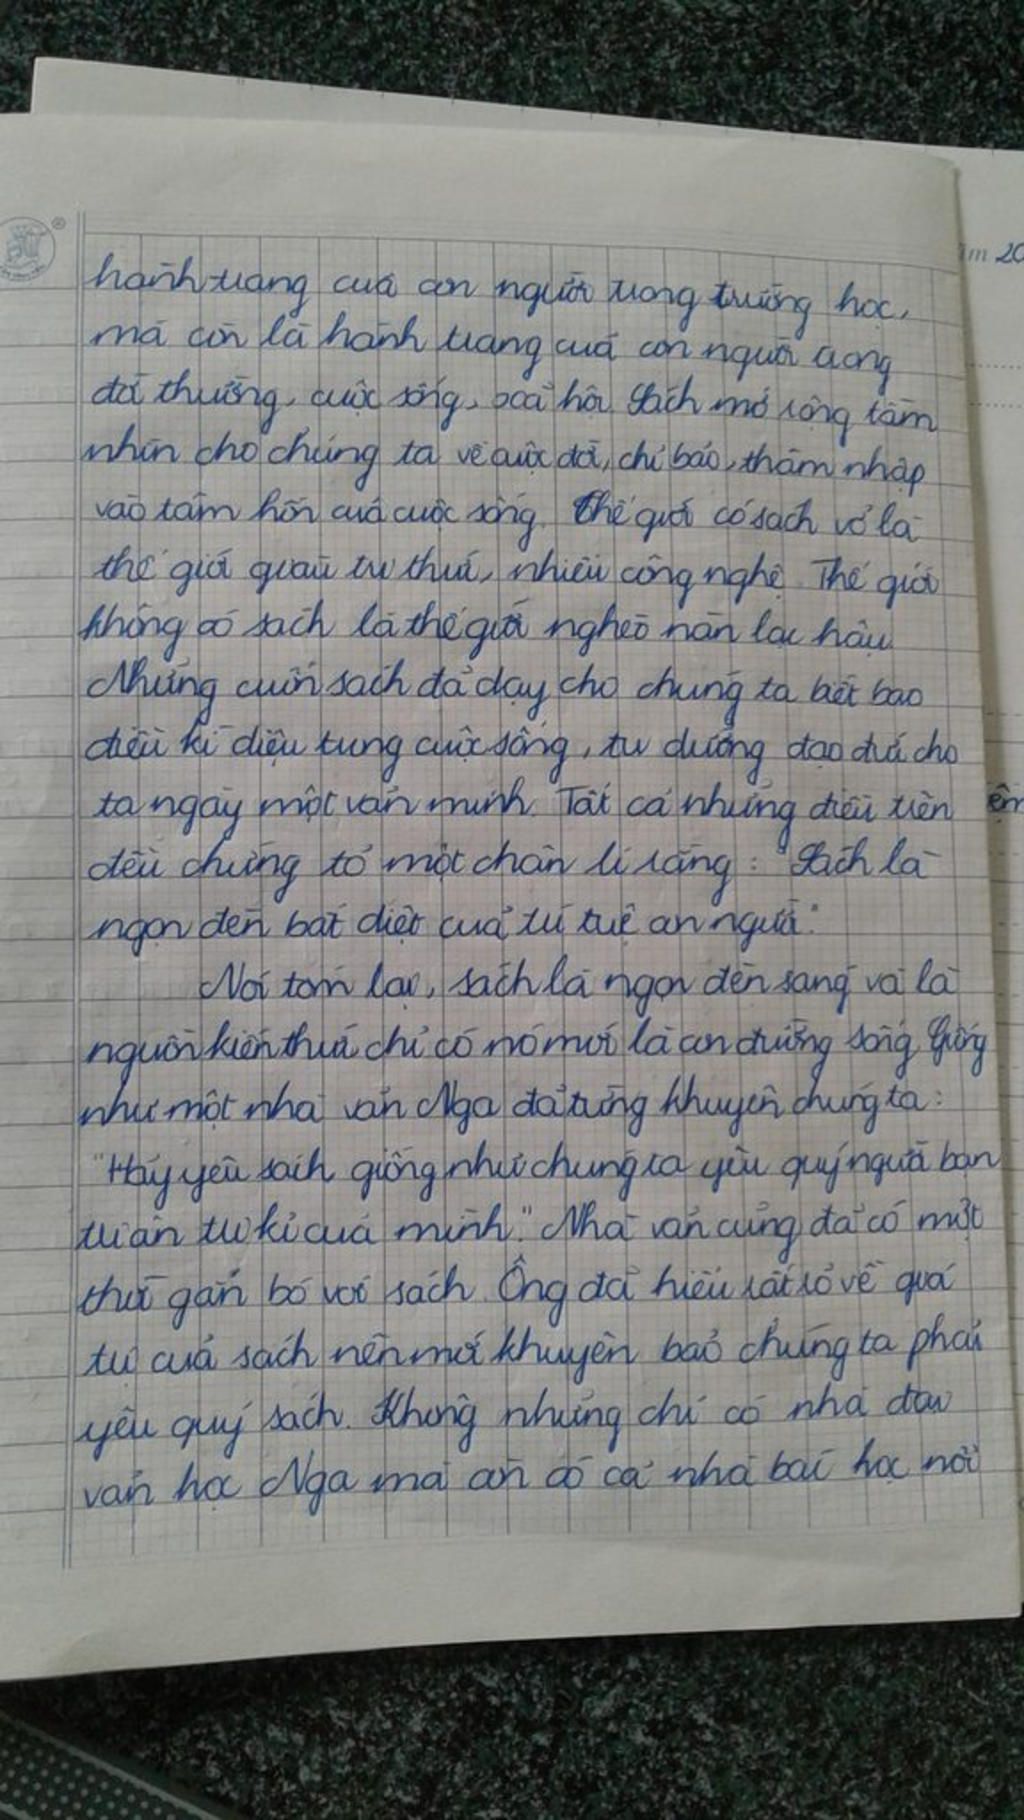 hành trang của con người trong trường học,
mà còn là hành trang của con người trong
đời thường, cuộc sống, xã hội. Sách mở rộng tầm
nhìn cho chúng ta về cuộc đời, chỉ bảo, thâm nhập
vào tâm hồn của cuộc sống. Thế giới có sách vở là
thế giới quan tri thức, nhiều công nghệ. Thế giới
không có sách là thế giới nghèo nàn lạc hậu.
Những cuốn sách đã dạy cho chúng ta biết bao
điều kì diệu trong cuộc sống, tu dưỡng đạo đức cho
ta ngày một văn minh. Tất cả những điều trên
đều chứng tỏ một chân lí rằng: "Sách là
ngọn đèn bất diệt của trí tuệ con người."
Nói tóm lại, sách là ngọn đèn sáng và là
nguồn kiến thức chỉ có nó mới là con đường sống. Giống
như một nhà văn Nga đã từng khuyên chúng ta:
"Hãy yêu sách giống như chúng ta yêu quý người bạn
tri ân tri kỉ của mình." Nhà văn cũng đã có một
thời gắn bó với sách. Ông đã hiểu rất rõ về giá
trị của sách nên mới khuyên bảo chúng ta phải
yêu quý sách. Không những chỉ có nhà đại
văn học Nga mà còn có cả nhà bác học nổi